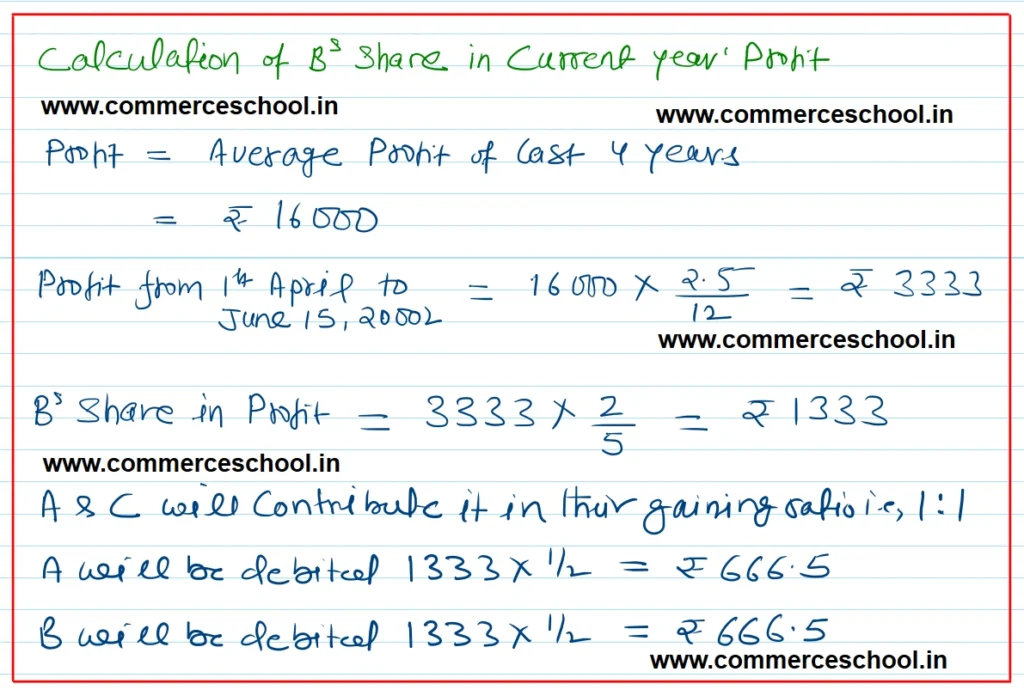 Calculation of B's Share in Current year' Profit
www.commerceschool.in
www.commerceschool.in
Profit = Average Profit of last 4 years
= ₹ 16000
Profit from 1th April to June 15, 20002 = 16000 × 2.5/12 = ₹ 3333
www.commerceschool.in
B's Share in Profit = 3333 × 2/5 = ₹ 1333
www.commerceschool.in
A & C will Contribute it in their gaining ratio i.e, 1:1
A will be debited 1333 × 1/2 = ₹ 666.5
B will be debited 1333 × 1/2 = ₹ 666.5
www.commerceschool.in